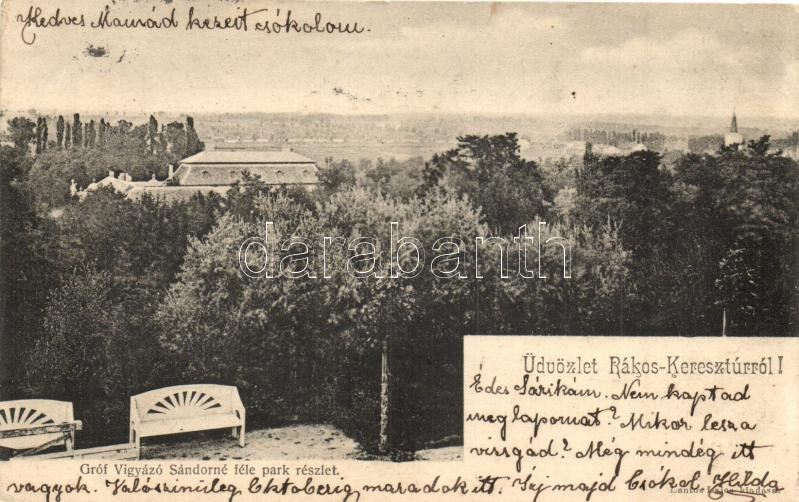 Kedves Mamád kezeit csókolom.
darabanth
Üdvözlet Rákos-Keresztúrról!
Édes Sárikám. Nem kaptad
meg lapomat? Mikor lesz a
vizsgád? Még mindég itt
Gróf Vigyázó Sándorné féle park részlet.
vagyok. Valószinüleg Oktoberig maradok itt. Irj majd Csókol Hilda